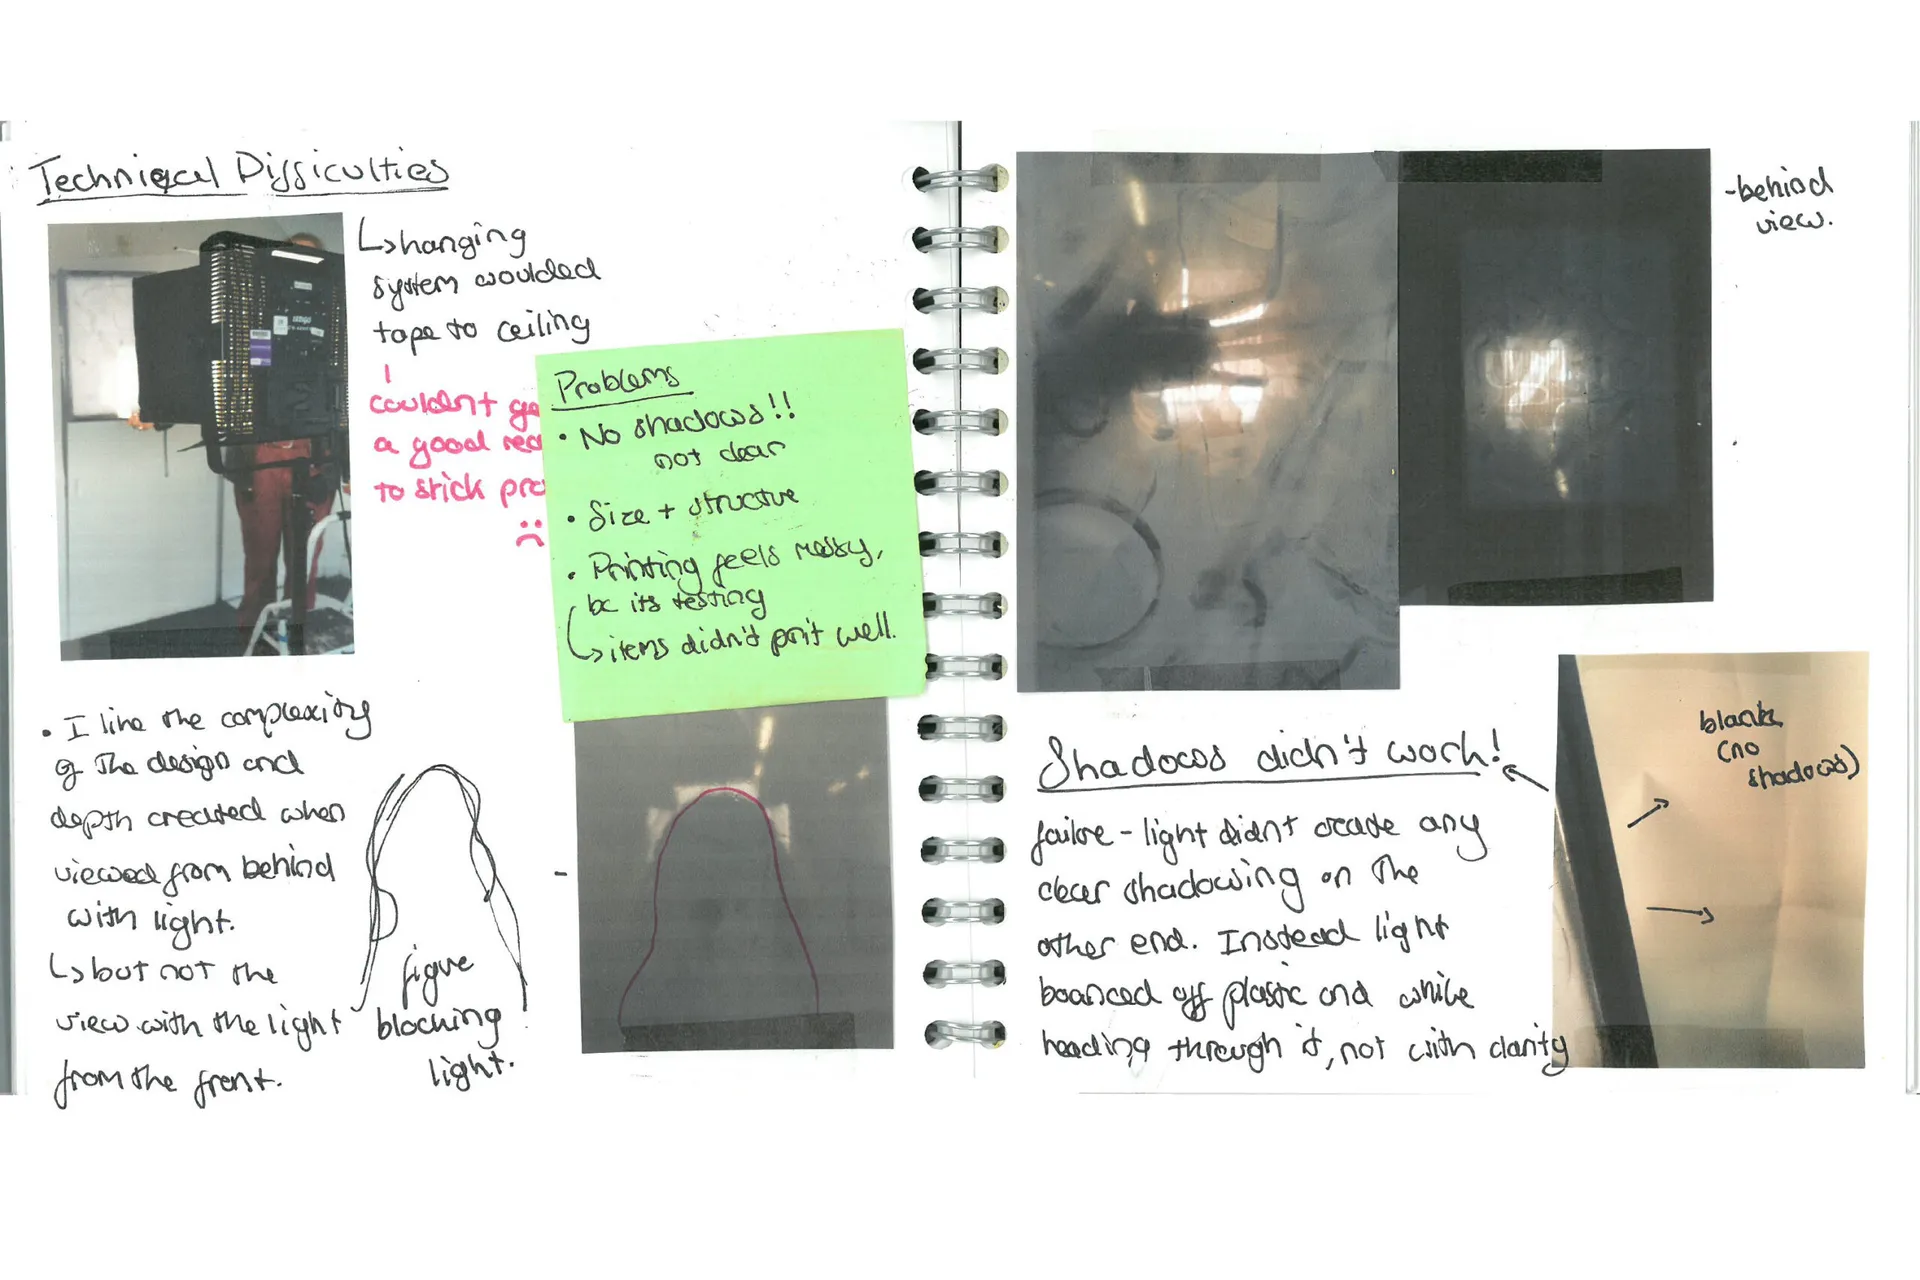 Technical Difficulties
↳hanging
system woulded
tape to ceiling
couldnt
a good
to stick
:(
Problems
• No shadows!!
not clear
• Size + structure
• Printing feels messy,
bc its testing
↳items didn't print well.
• I like the complexity
of the design and
depth created when
viewed from behind
with light.
↳but not the
view with the light
from the front.
figure
blocking
light.
-behind
view.
Shadows didn't work!
failure - light didnt create any
clear shadowing on the
other end. Instead light
bounced off plastic and while
heading through it, not with clarity
blank
(no
shadows)